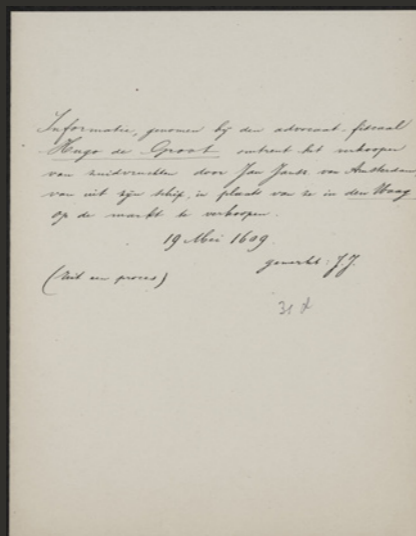 Informatie, genomen bij den advocaat-fiscaal
Hugo de Groot omtrent het verkoopen
van zuidvruchten door Jan Jansz. van Amsterdam,
van uit zijn schip, in plaats van ze in den Haag
op de markt te verkoopen.
19 Mei 1609.
gemerkt: J.J.
(Uit een proces)